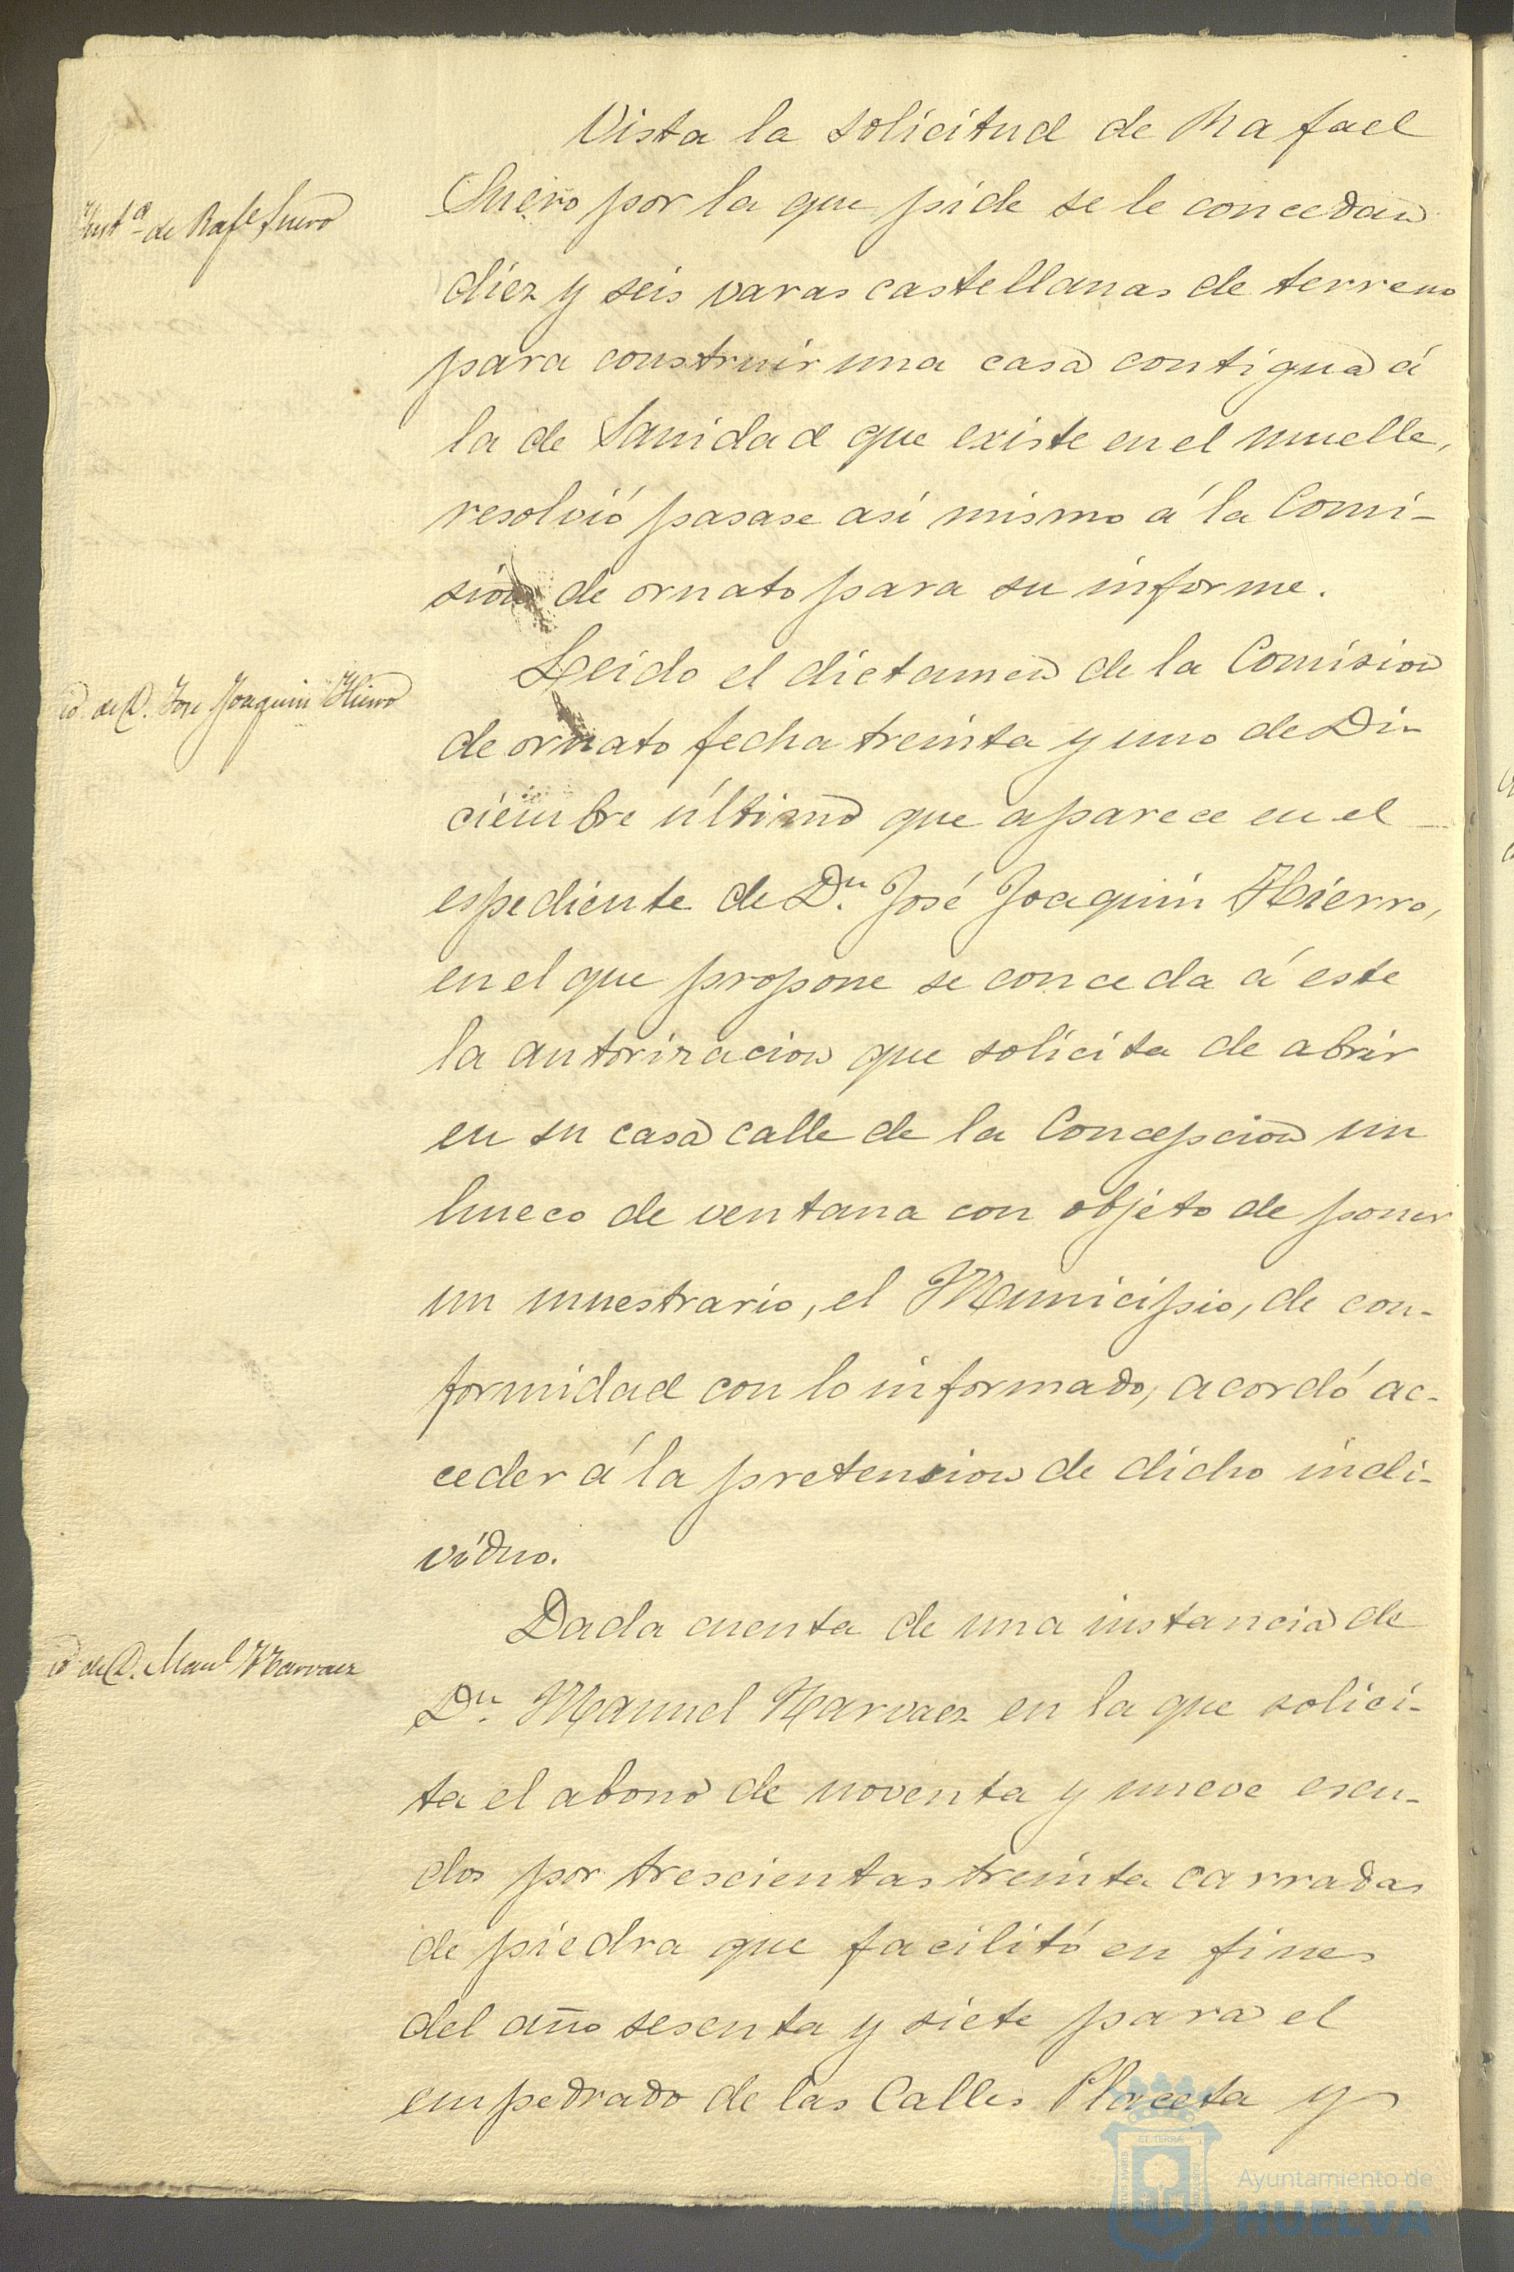 Vista la solicitud de Rafael
Inst.ª de Raf.l Suero
Suero por la que pide se le concedan
diez y seis varas castellanas de terreno
para construir una casa contigua á
la de Sanidad que existe en el muelle,
resolvió pasase asi mismo á la Comi-
sion de ornato para su informe.
Leido el dictamen de la Comision
id. de D. Jose Joaquin Hierro
de ornato fecha treinta y uno de Di-
ciembre último que aparece en el
espediente de D.n José Joaquin Hierro,
en el que propone se conceda á este
la autorizacion que solicita de abrir
en su casa calle de la Concepcion un
hueco de ventana con objeto de poner
un muestrario, el Municipio, de con-
formidad con lo informado, acordó ac-
ceder á la pretension de dicho indi-
viduo.
Dada cuenta de una instancia de
id. de D. Man.l Narvaez
D.n Manuel Narvaez en la que solici-
ta el abono de noventa y nueve escu-
dos por trescientas treinta carradas
de piedra que facilitó en fines
del año sesenta y siete para el
empedrado de las Calles Placeta y
Ayuntamiento de
HUELVA